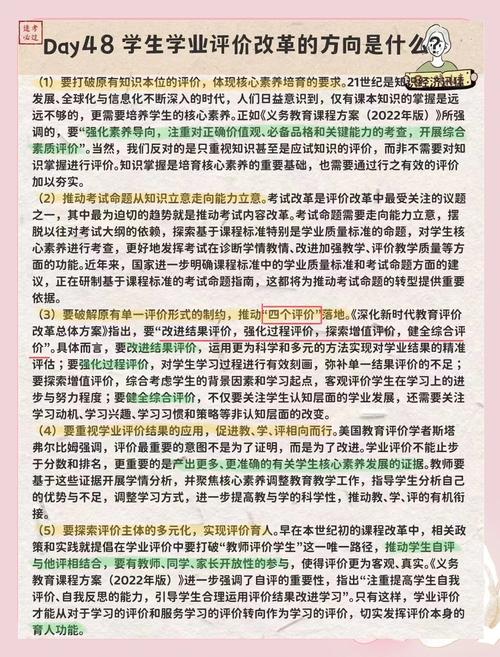 逢考必过
Day48 学生学业评价改革的方向是什么
（1）要打破原有知识本位的评价，体现核心素养培育的要求。21世纪是知识经济迅猛
发展、全球化与信息化不断深入的时代，人们日益意识到，仅有课本知识的掌握是远
远不够的，更需要培养学生的核心素养。正如《义务教育课程方案（2022年版）》所强
调的，要“强化素养导向，注重对正确价值观、必备品格和关键能力的考查，开展综合
素质评价”。当然，我们反对的是只重视知识甚至是应试知识的评价，而非不需要对知
识掌握进行评价。知识掌握是培育核心素养的重要基础，也需要通过行之有效的评价
加以夯实。
（2）推动考试命题从知识立意走向能力立意。考试改革是评价改革中最受关注的议题
之一，其中最为迫切的趋势就是推动考试内容改革。考试命题需要走向能力立意，摆
脱以往对考试大纲的依赖，探索基于课程标准特别是学业质量标准的命题，对学生核
心素养进行考查，更好地发挥考试在诊断学情教情、改进加强教学、评价教学质量等方
面的功能。近年来，国家进一步明确课程标准中的学业质量标准和考试命题方面的建
议，正在研制基于课程标准的考试命题指南，这都将为推动考试命题的转型提供重要
依据。
（3）要破解原有单一评价形式的制约，推动“四个评价”落地。《深化新时代教育评价
改革总体方案》指出，要“改进结果评价，强化过程评价，探索增值评价，健全综合评
价”。具体而言，要改进结果评价，运用更为科学和多元的方法实现对学业结果的精准
评估；要强化过程评价，对学生学习过程进行有效刻画，弥补单一结果评价的不足；
要探索增值评价，综合考虑学生的背景因素和学习起点，客观评价学生在学习上的进
步与努力程度；要健全综合评价，不仅要关注学生认知层面的学业发展，还需要关注
学习动机、学习兴趣、学习习惯和策略等非认知层面的改变。
（4）要重视学业评价结果的应用，促进教、学、评相向而行。美国教育评价学者斯塔
弗尔比姆强调，评价最重要的意图不是为了证明，而是为了改进。学业评价不能止步
于分数和排名，更重要的是产出更多、更准确的有关学生核心素养发展的证据。教师要
基于这些证据开展学情分析，并聚焦核心素养调整教育教学工作，指导学生分析自己
的优势与不足，调整学习方式，进一步提高教与学的科学性，推动教、学、评的有机衔
接。
（5）要探索评价主体的多元化，实现评价育人。早在本世纪初的课程改革中，相关政
策和实践就提倡在学业评价中要打破“教师评价学生”这一唯一路径，推动学生自评
与他评相结合，要有教师、同学、家长开放性的参与，使得评价更为客观、真实。《义务
教育课程方案（2022年版）》进一步强调了自评的重要性，指出“注重提高学生自我
评价、自我反思的能力，引导学生合理运用评价结果改进学习”。只有这样，学业评价
才能从对于学习的评价和服务学习的评价转向作为学习的评价，切实发挥评价本身的
育人功能。